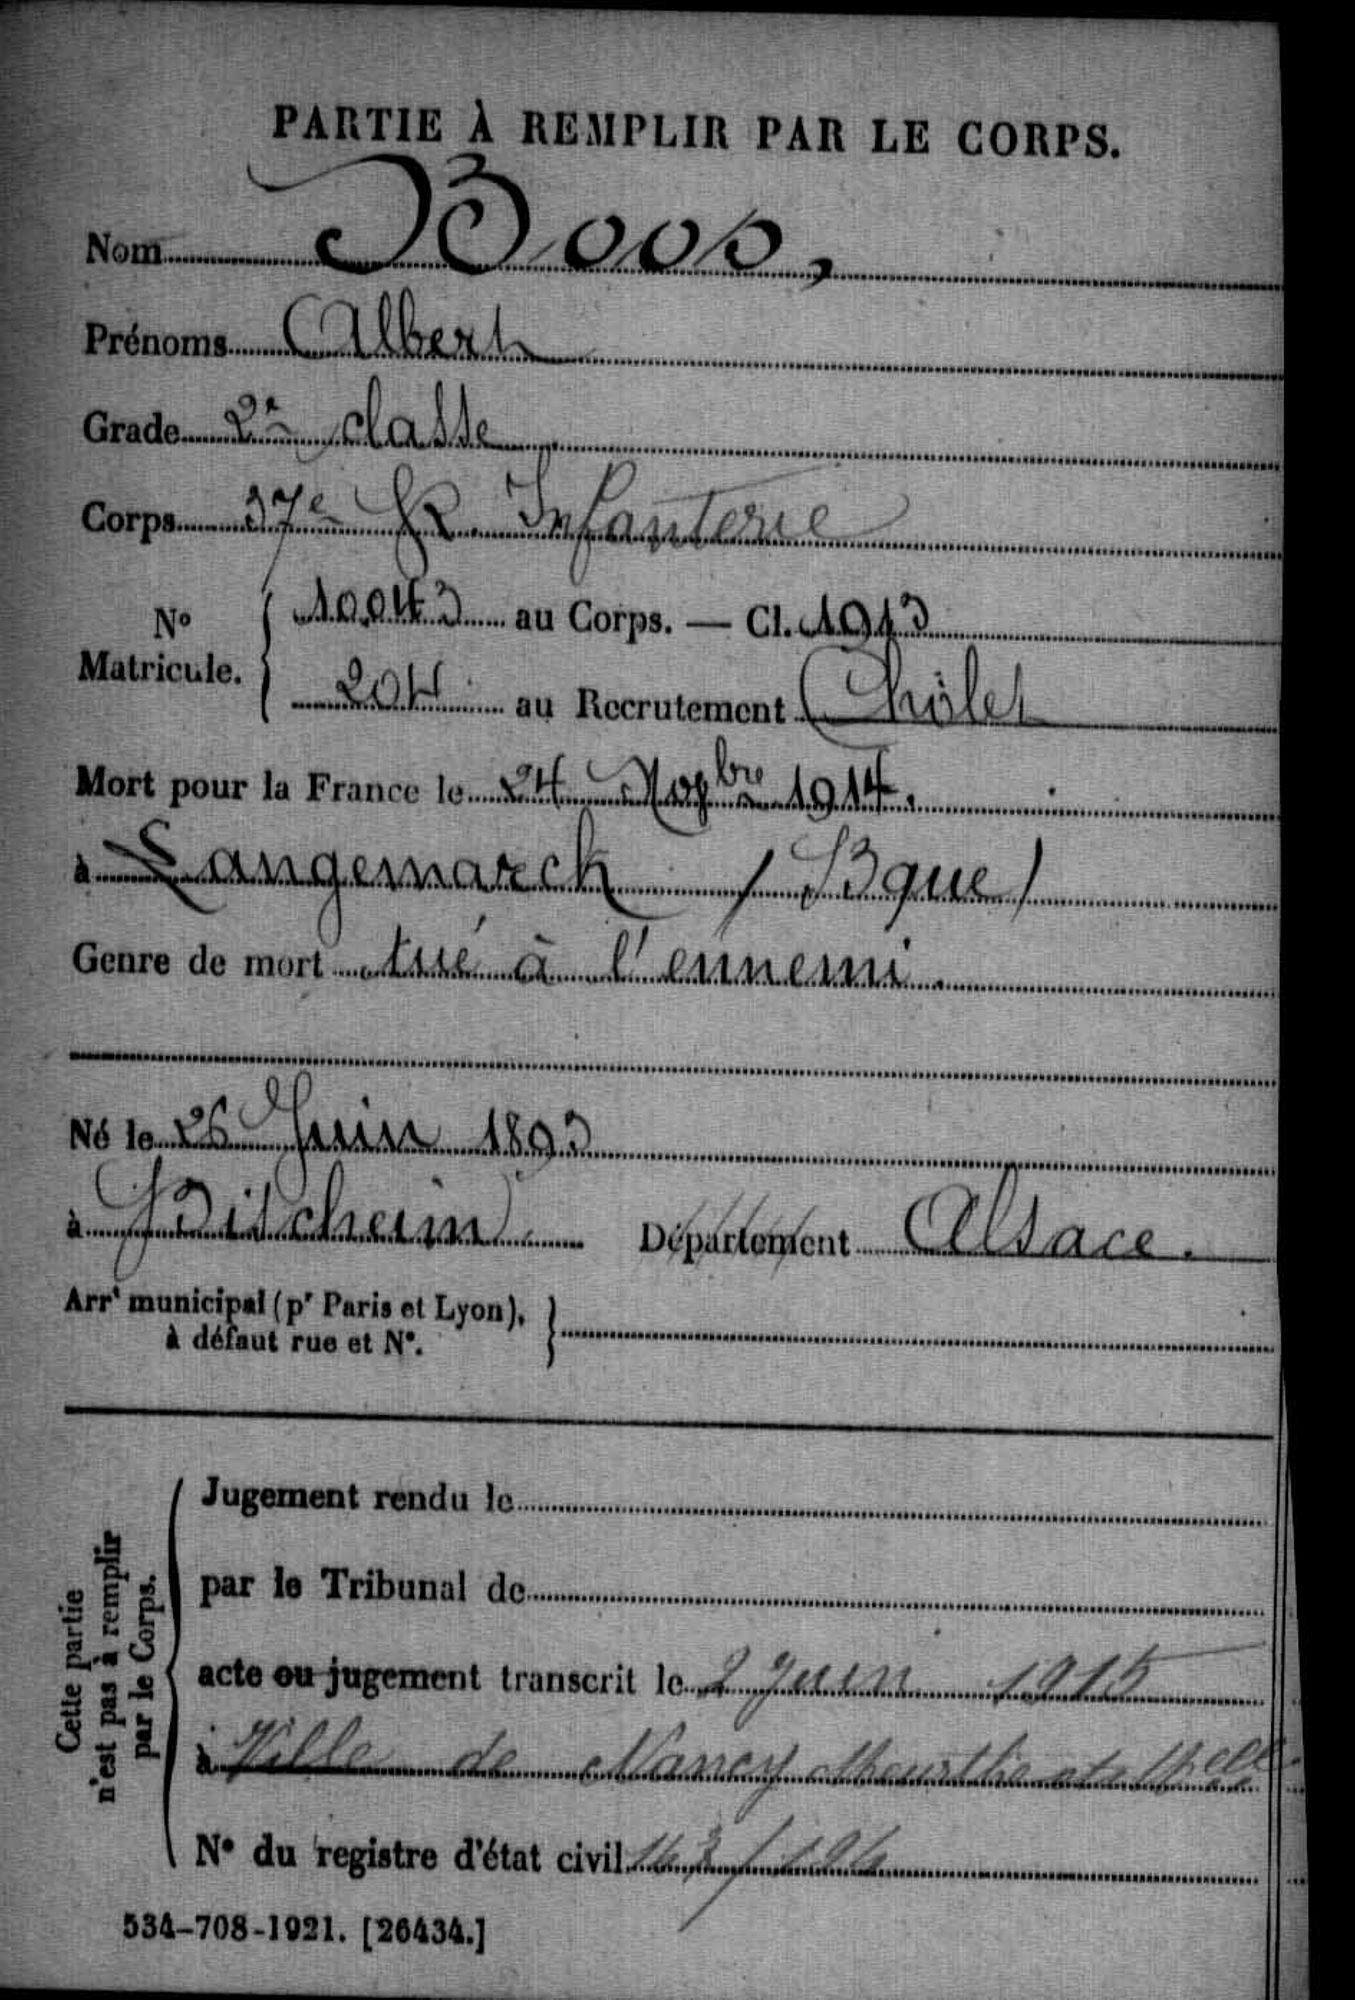 PARTIE À REMPLIR PAR LE CORPS.
Nom Boos,
Prénoms Albert
Grade 2e classe
Corps 37e R. Infanterie
No Matricule. { 10.043 au Corps. — Cl. 1913
204 au Recrutement Chôlet
Mort pour la France le 24 Novbre 1914.
à Langemarck / Bque /
Genre de mort tué à l'ennemi.
Né le 26 Juin 1893
à Bischeim. Département Alsace.
Arrt municipal (pr Paris et Lyon), }
à défaut rue et No.
Cette partie
n'est pas à remplir
par le Corps.
Jugement rendu le
par le Tribunal de
acte ou jugement transcrit le 2 Juin 1915
à Ville de Nancy Meurthe et Melle
No du registre d'état civil 143/194
534-708-1921. [26434.]